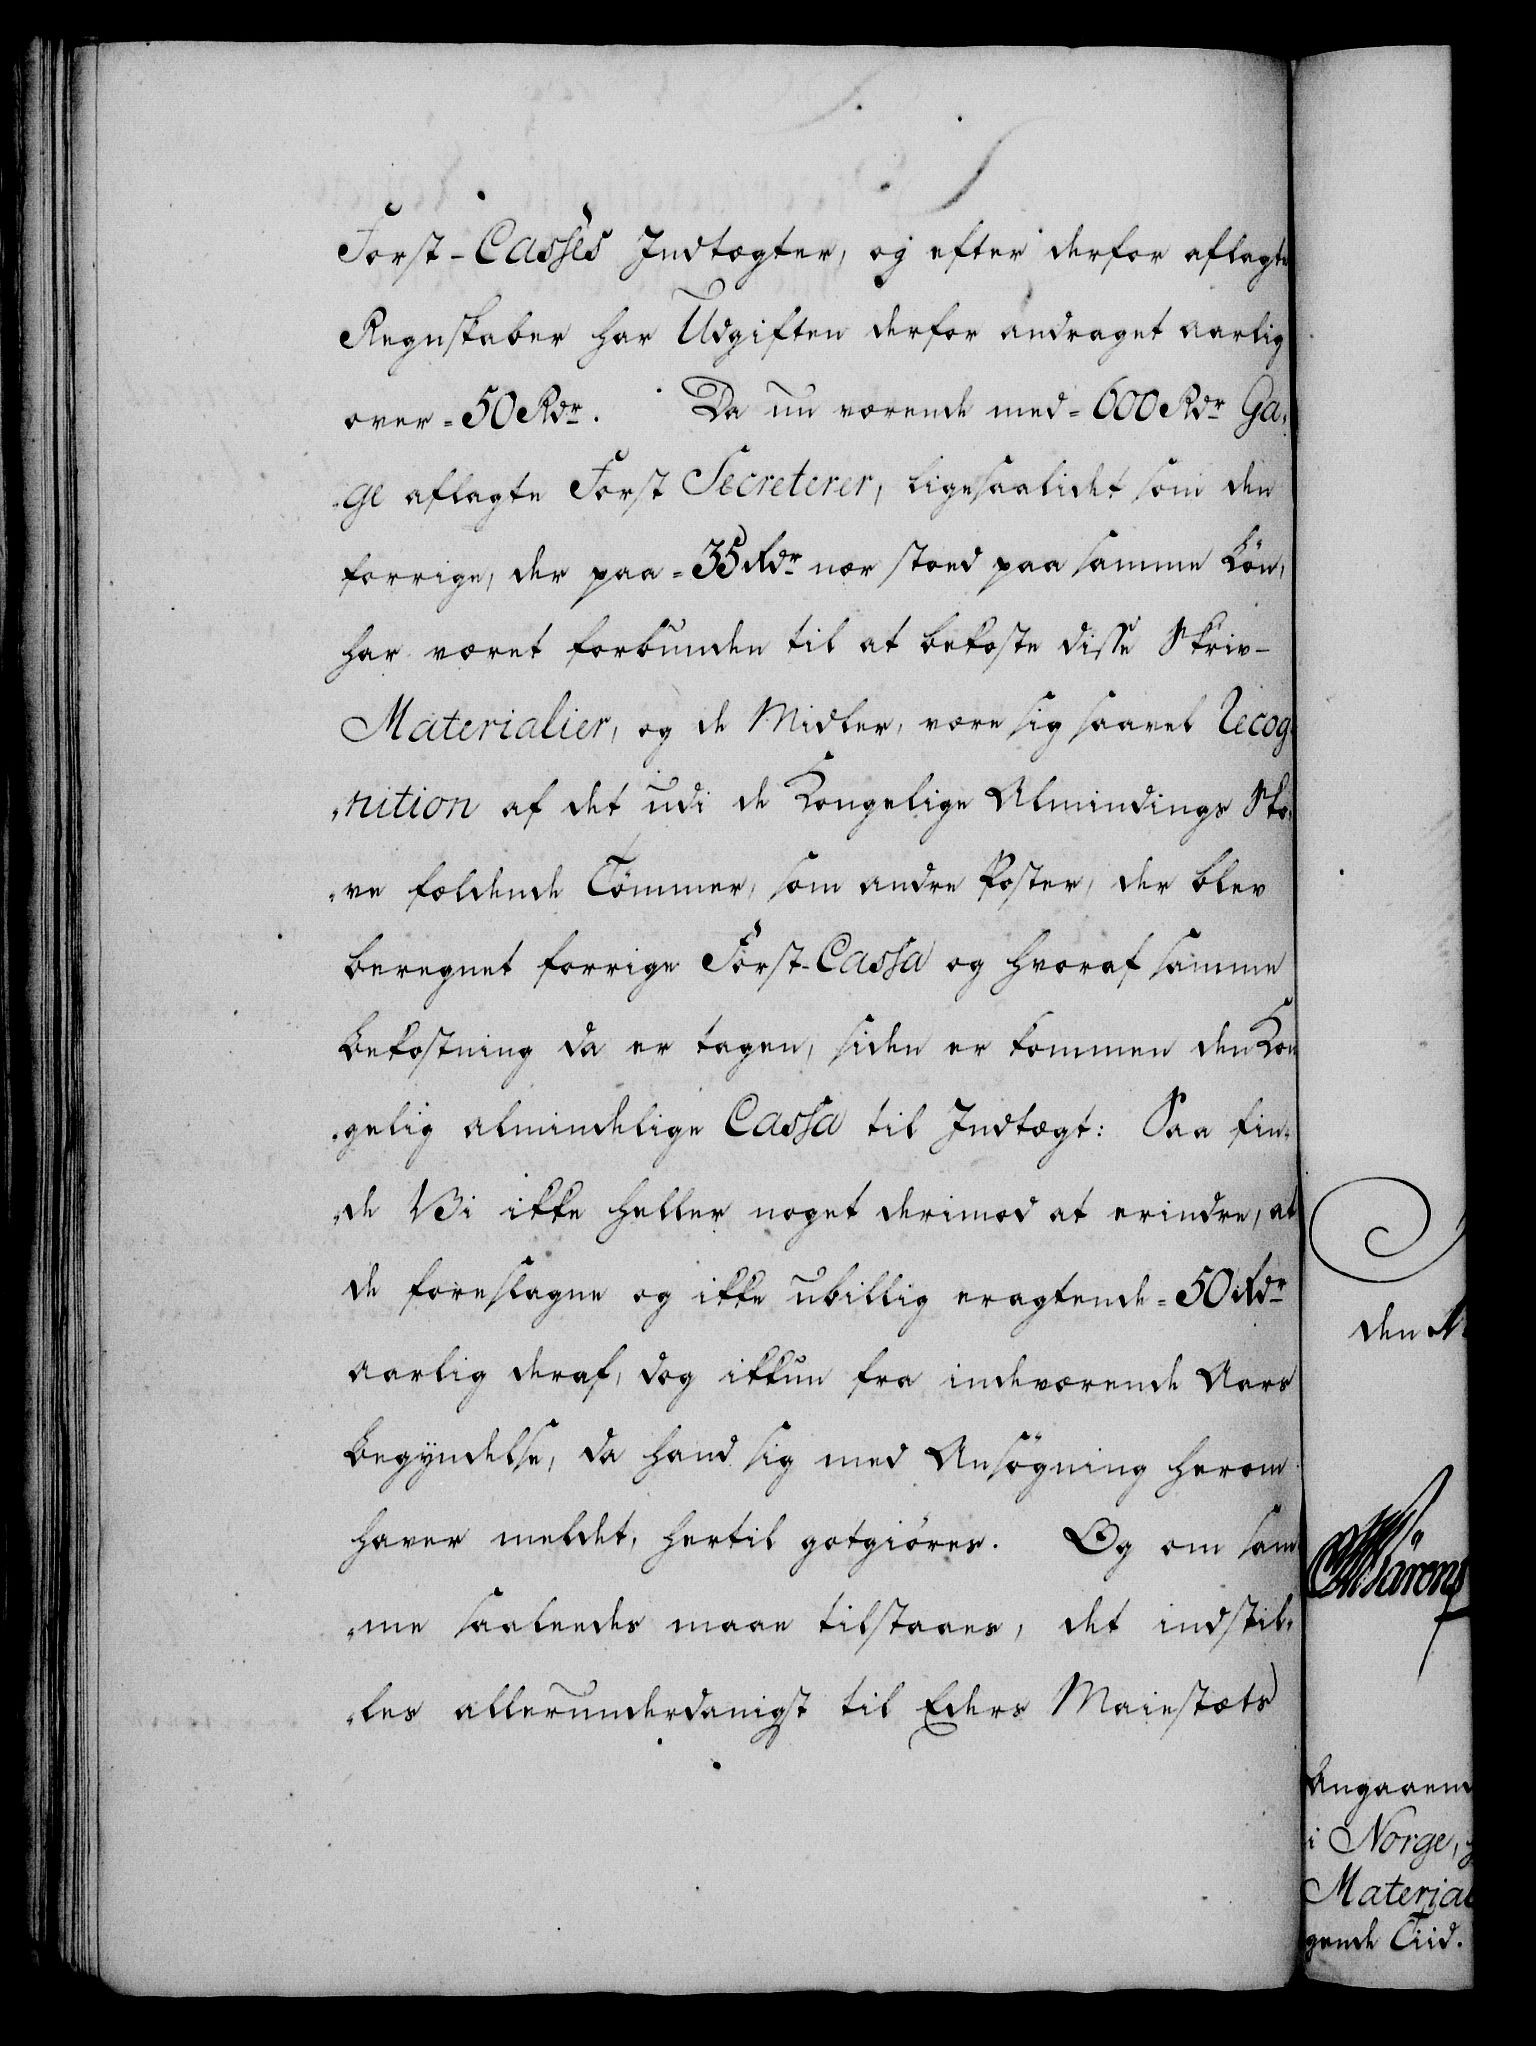 Forst-Casses Indtægter, og efter derfor aflagte
Regnskaber har Udgiften derfor andraget aarlig
over = 50 Rdr. Da nu værende med = 600 Rdr Ga„
„ge aflagte Forst Secreterer, ligesaalidet som den
forrige, der paa = 35 Rdr nær stoed paa samme Løn,
har været forbunden til at bekoste disse Skriv-
Materialier, og de Midler, være sig saavel Recog„
„nition af det udi de Kongelige Almindings Sko„
„ve fældende Tömmer, som andre Poster, der blev
beregnet forrige Forst-Cassa og hvoraf samme
Bekostning da er tagen, siden er kommen den Kon
„gelig almindelige Cassa til Indtægt: Saa fin„
„de Vi ikke heller noget derimod at erindre, at
de foreslagne og ikke ubillig eragtende = 50 Rdr
aarlig deraf, dog ikkun fra indeværende Aars
Begyndelse, da hand sig med Ansögning herom
haver meldet, hertil gotgiöres. Og om sam
„me saaleedes maae tilstaaes, det indstil„
„les allerunderdanigst til Eders Maiestæts
den
Angaaend
i Norge,
Material
gende Tiid.